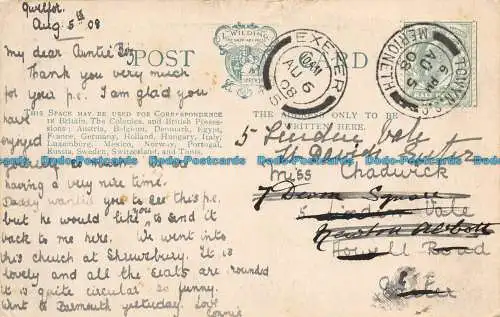 Gwelfor.
Aug 5th 08
My dear Auntie
Thank you very much
for your p.c. I am glad you
have
enjoyed
having a very nice time.
Daddy wanted you to see this p.c.
but he would like you to send it
back to me here. We went into
this church at Shrewsbury. It is
lovely and all the seats are rounded
it is quite circular so funny.
Went to Barmouth yesterday. Love
Connie
POST CARD
WILDING
THIS SPACE MAY BE USED FOR CORRESPONDENCE
in Britain, The Colonies, and British Possessions;
Austria, Belgium, Denmark, Egypt,
France, Germany, Holland, Hungary, Italy,
Luxemburg, Mexico, Norway, Portugal,
Russia, Sweden, Switzerland, and Tunis.
THE ADDRESS ONLY TO BE
WRITTEN HERE.
EXETER
AU 6
08
TOWYN
MERIONETH
AU 5
08
5
Vale
Miss Chadwick
Square
5 Vale
Newton Abbott
Howell Road
Exeter